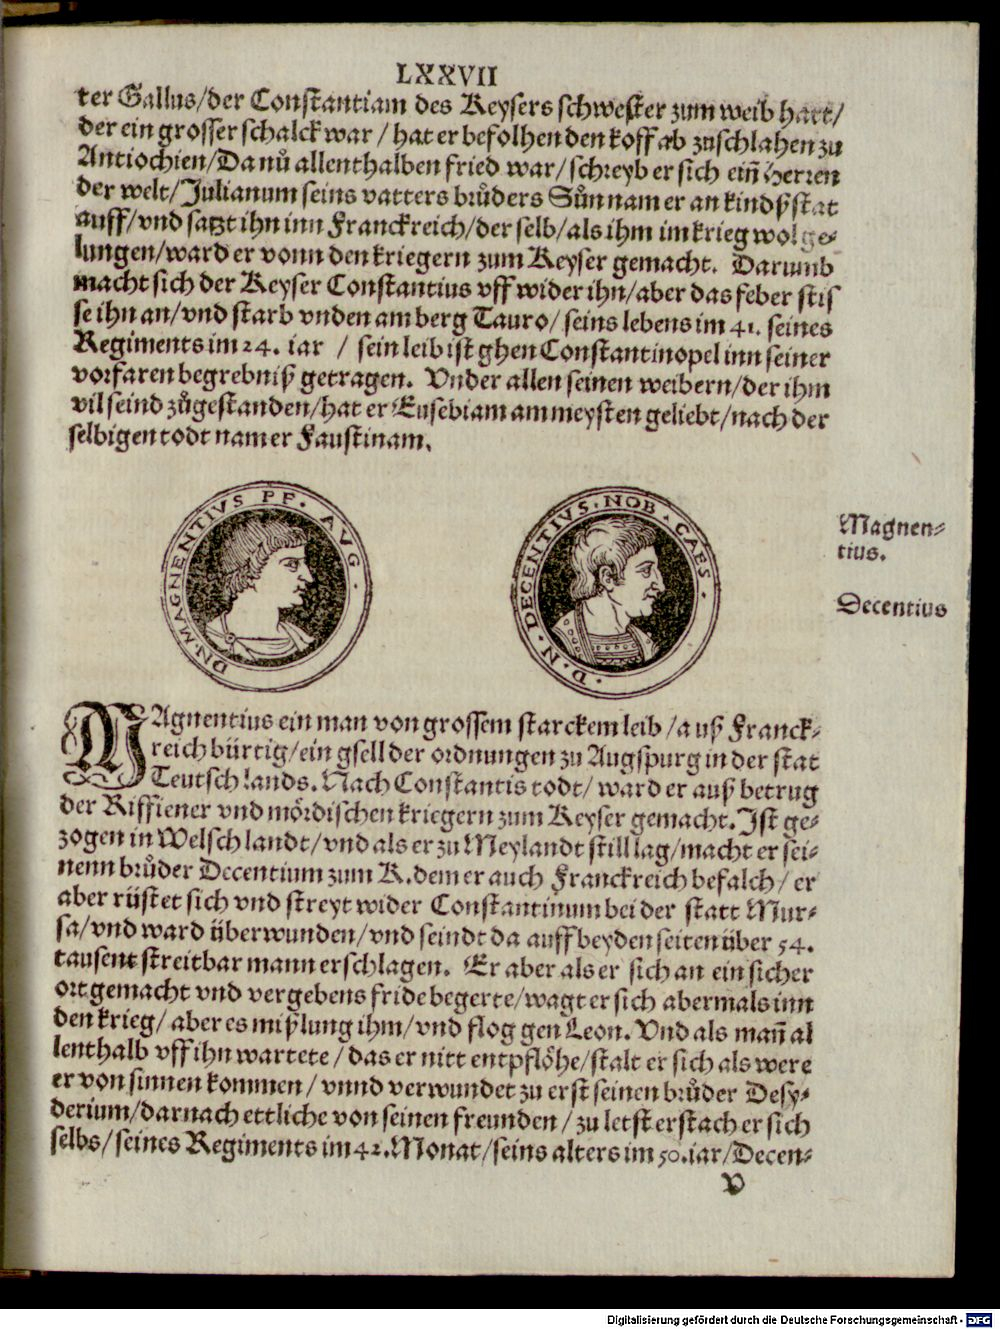 LXXVII
ter Gallus/der Constantiam des Keysers schwester zum weib hatt/
der ein grosser schalck war / hat er befolhen den koff ab zuschlahen zu
Antiochien/Da nů allenthalben fried war/schreyb er sich eiñ Herren
der welt/Julianum seins vatters brůders Sůn nam er an kindß stat
auff/vnd satzt ihn inn Franckreich/der selb/als ihm im krieg wol ge⸗
lungen/ward er vonn den kriegern zum Keyser gemacht. Darumb
macht sich der Keyser Constantius vff wider ihn/aber das feber stis
se ihn an/vnd starb vnden am berg Tauro/seins lebens im 41. seines
Regiments im 24. iar / sein leib ist ghen Constantinopel inn seiner
vorfaren begrebniß getragen. Vnder allen seinen weibern/der ihm
vil seind zůgestanden/hat er Eusebiam am meysten geliebt/nach der
selbigen todt nam er Faustinam.
DN·MAGNENTIVS PF. AVG.
D·N·DECENTIVS·NOB·CAES·
Magnen⸗
tius.
Decentius
MAgnentius ein man von grossem starckem leib/auß Franck⸗
reich bürtig/ein gsell der ordnungen zu Augspurg in der stat
Teutschlands. Nach Constantis todt/ward er auß betrug
der Riffiener vnd mördischen kriegern zum Keyser gemacht. Ist ge⸗
zogen in Welschlandt/vnd als er zu Meylandt still lag/macht er sei⸗
nenn brůder Decentium zum K. dem er auch Franckreich befalch/er
aber rüstet sich vnd streyt wider Constantinum bei der statt Mur⸗
sa/vnd ward überwunden/vnd seindt da auff beyden seiten über 54.
tausent streitbar mann erschlagen. Er aber als er sich an ein sicher
ort gemacht vnd vergebens fride begerte/wagt er sich abermals inn
den krieg/aber es mißlung ihm/vnd flog gen Leon. Vnd als mañ al
lenthalb vff ihn wartete/das er nitt entpflöhe/stalt er sich als were
er von sinnen kommen/vnnd verwundet zu erst seinen brůder Desy⸗
derium/darnach ettliche von seinen freunden/zu letst erstach er sich
selbs/seines Regiments im 42. Monat/seins alters im 50. iar/Decen⸗
V
Digitalisierung gefördert durch die Deutsche Forschungsgemeinschaft - DFG